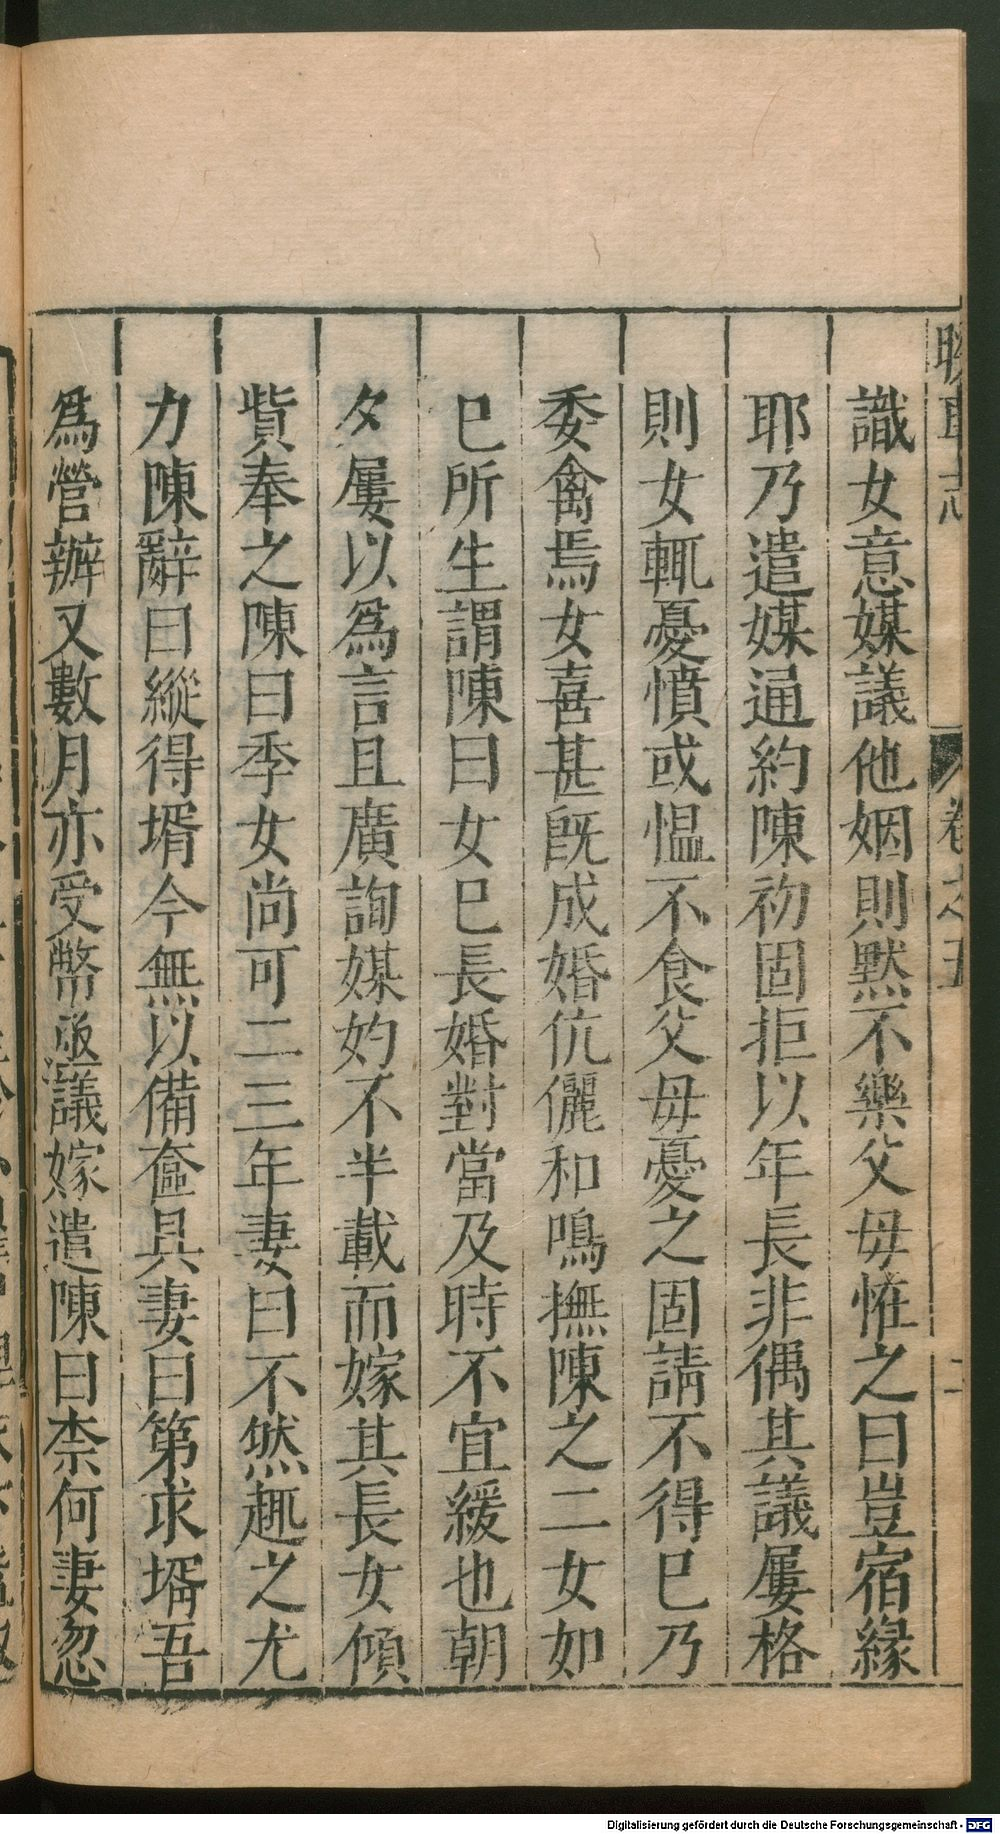 識女意媒議他姻則黙不樂父母恠之曰豈宿緣
耶乃遣媒通約陳初固拒以年長非偶其議屢格
則女輒憂憤或慍不食父母憂之固請不得巳乃
委禽焉女喜甚旣成婚伉儷和鳴撫陳之二女如
巳所生謂陳曰女巳長婚對當及時不宜緩也朝
夕屢以爲言且廣詢媒妁不半載而嫁其長女傾
貲奉之陳曰季女尚可二三年妻曰不然趣之尤
力陳辭曰縱得壻今無以備奩具妻曰第求壻吾
爲營辦又數月亦受幣亟議嫁遣陳曰柰何妻忽
卷之五
二
Digitalisierung gefördert durch die Deutsche Forschungsgemeinschaft - DFG